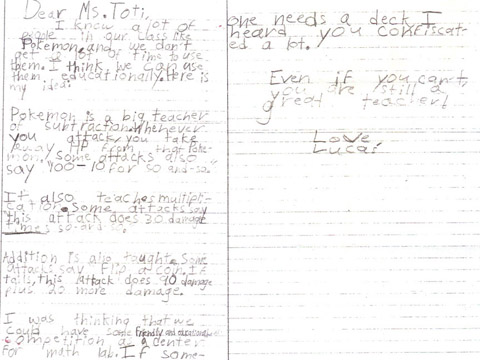 Dear Ms. Toti,
I know a lot of
people in our class like
Pokemon, and we don't
get a lot of time to use
them. I think we can use
them educationally. Here is
my idea:
Pokemon is a big teacher
of subtraction. Whenever
you attack, you take
away HP from that Poke-
mon. Some attacks also
say "100-10 for so and-so."
It also teaches multipli-
cation. Some attacks say
this attack does 30 damage
times so-and-so.
Addition is also taught. Some
attacks say Flip a coin. If
tails, this attack does 90 damage
plus 20 more damage.
I was thinking that we
could have some friendly and educational
competition as a center
for math lab. If some-
one needs a deck I
heard you confiscat-
ed a lot.
Even if you can't,
you are still a
great teacher!
Love
Lucas